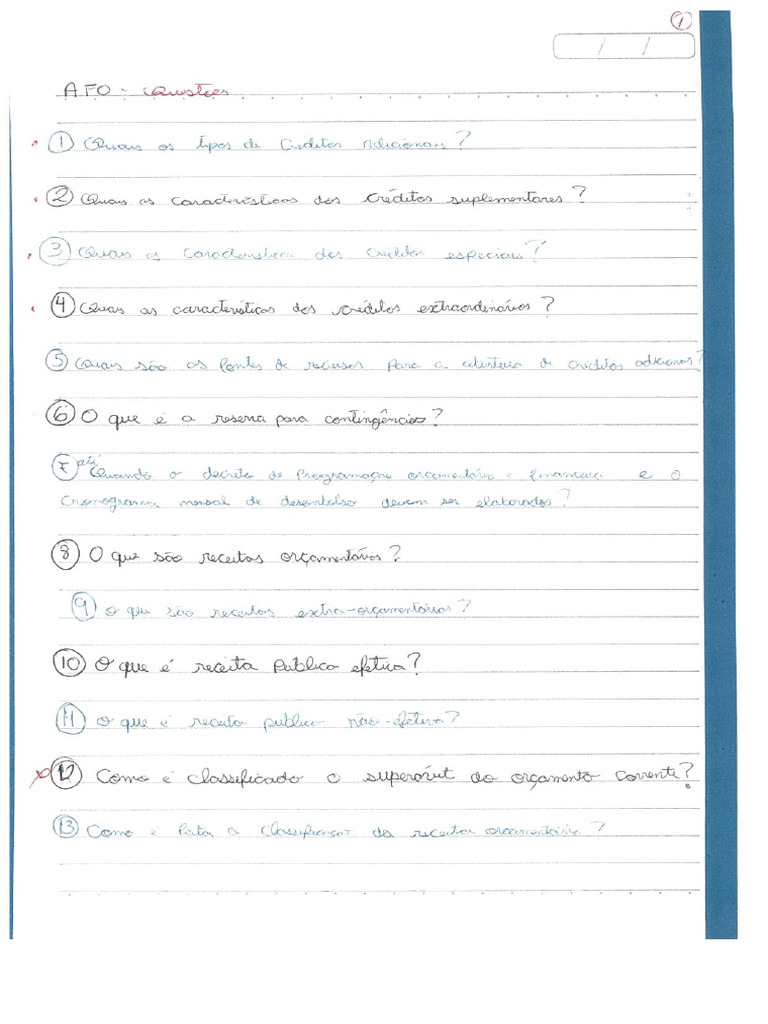 ①
/ /
AFO - Questões
① Quais os tipos de Créditos Adicionais?
② Quais as características dos créditos suplementares?
③ Quais as características dos créditos especiais?
④ Quais as características dos créditos extraordinários?
⑤ Quais são as fontes de recursos para a abertura de créditos adicionais?
⑥ O que é a reserva para contingências?
⑦ até Quando o decreto de Programação orçamentária e financeira e o
Cronograma mensal de desembolso devem ser elaborados?
⑧ O que são receitas orçamentárias?
⑨ O que são receitas extra-orçamentárias?
⑩ O que é receita Pública efetiva?
⑪ O que é receita pública não-efetiva?
⑫ Como é classificado o superávit do orçamento corrente?
⑬ Como é feita a classificação da receita orçamentária?